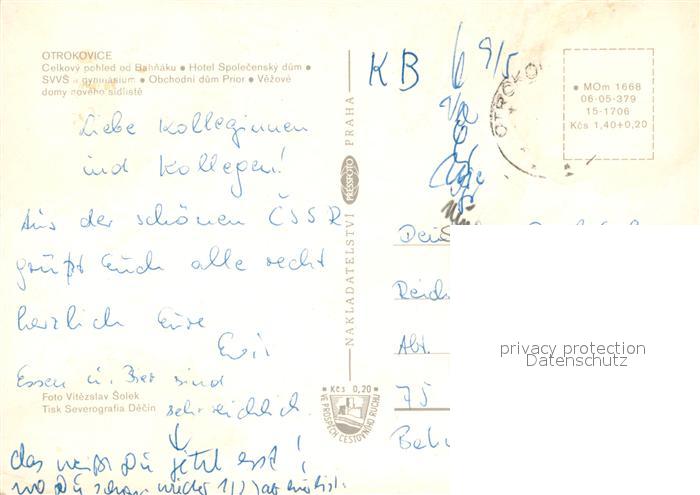 OTROKOVICE
Celkový pohled od Bahňáku • Hotel Společenský dům •
SVVŠ a gymnásium • Obchodní dům Prior • Věžové
domy nového sídliště
KB
9/5
OTROKO
• MOm 1668
06-05-379
15-1706
Kčs 1,40+0,20
Liebe Kolleginnen
und Kollegen!
Aus der schönen ČSSR
grüßt Euch alle recht
herzlich Eure
Evi
Essen u. Bier sind
sehr reichlich.
das weißt Du jetzt erst!
wo Du schon wieder
NAKLADATELSTVÍ PRESSFOTO PRAHA
Reich
Abt.
75
privacy protection
Datenschutz
Foto Vítězslav Šolek
Tisk Severografia Děčín
• Kčs 0,20 •
VE PROSPĚCH CESTOVNÍHO RUCHU